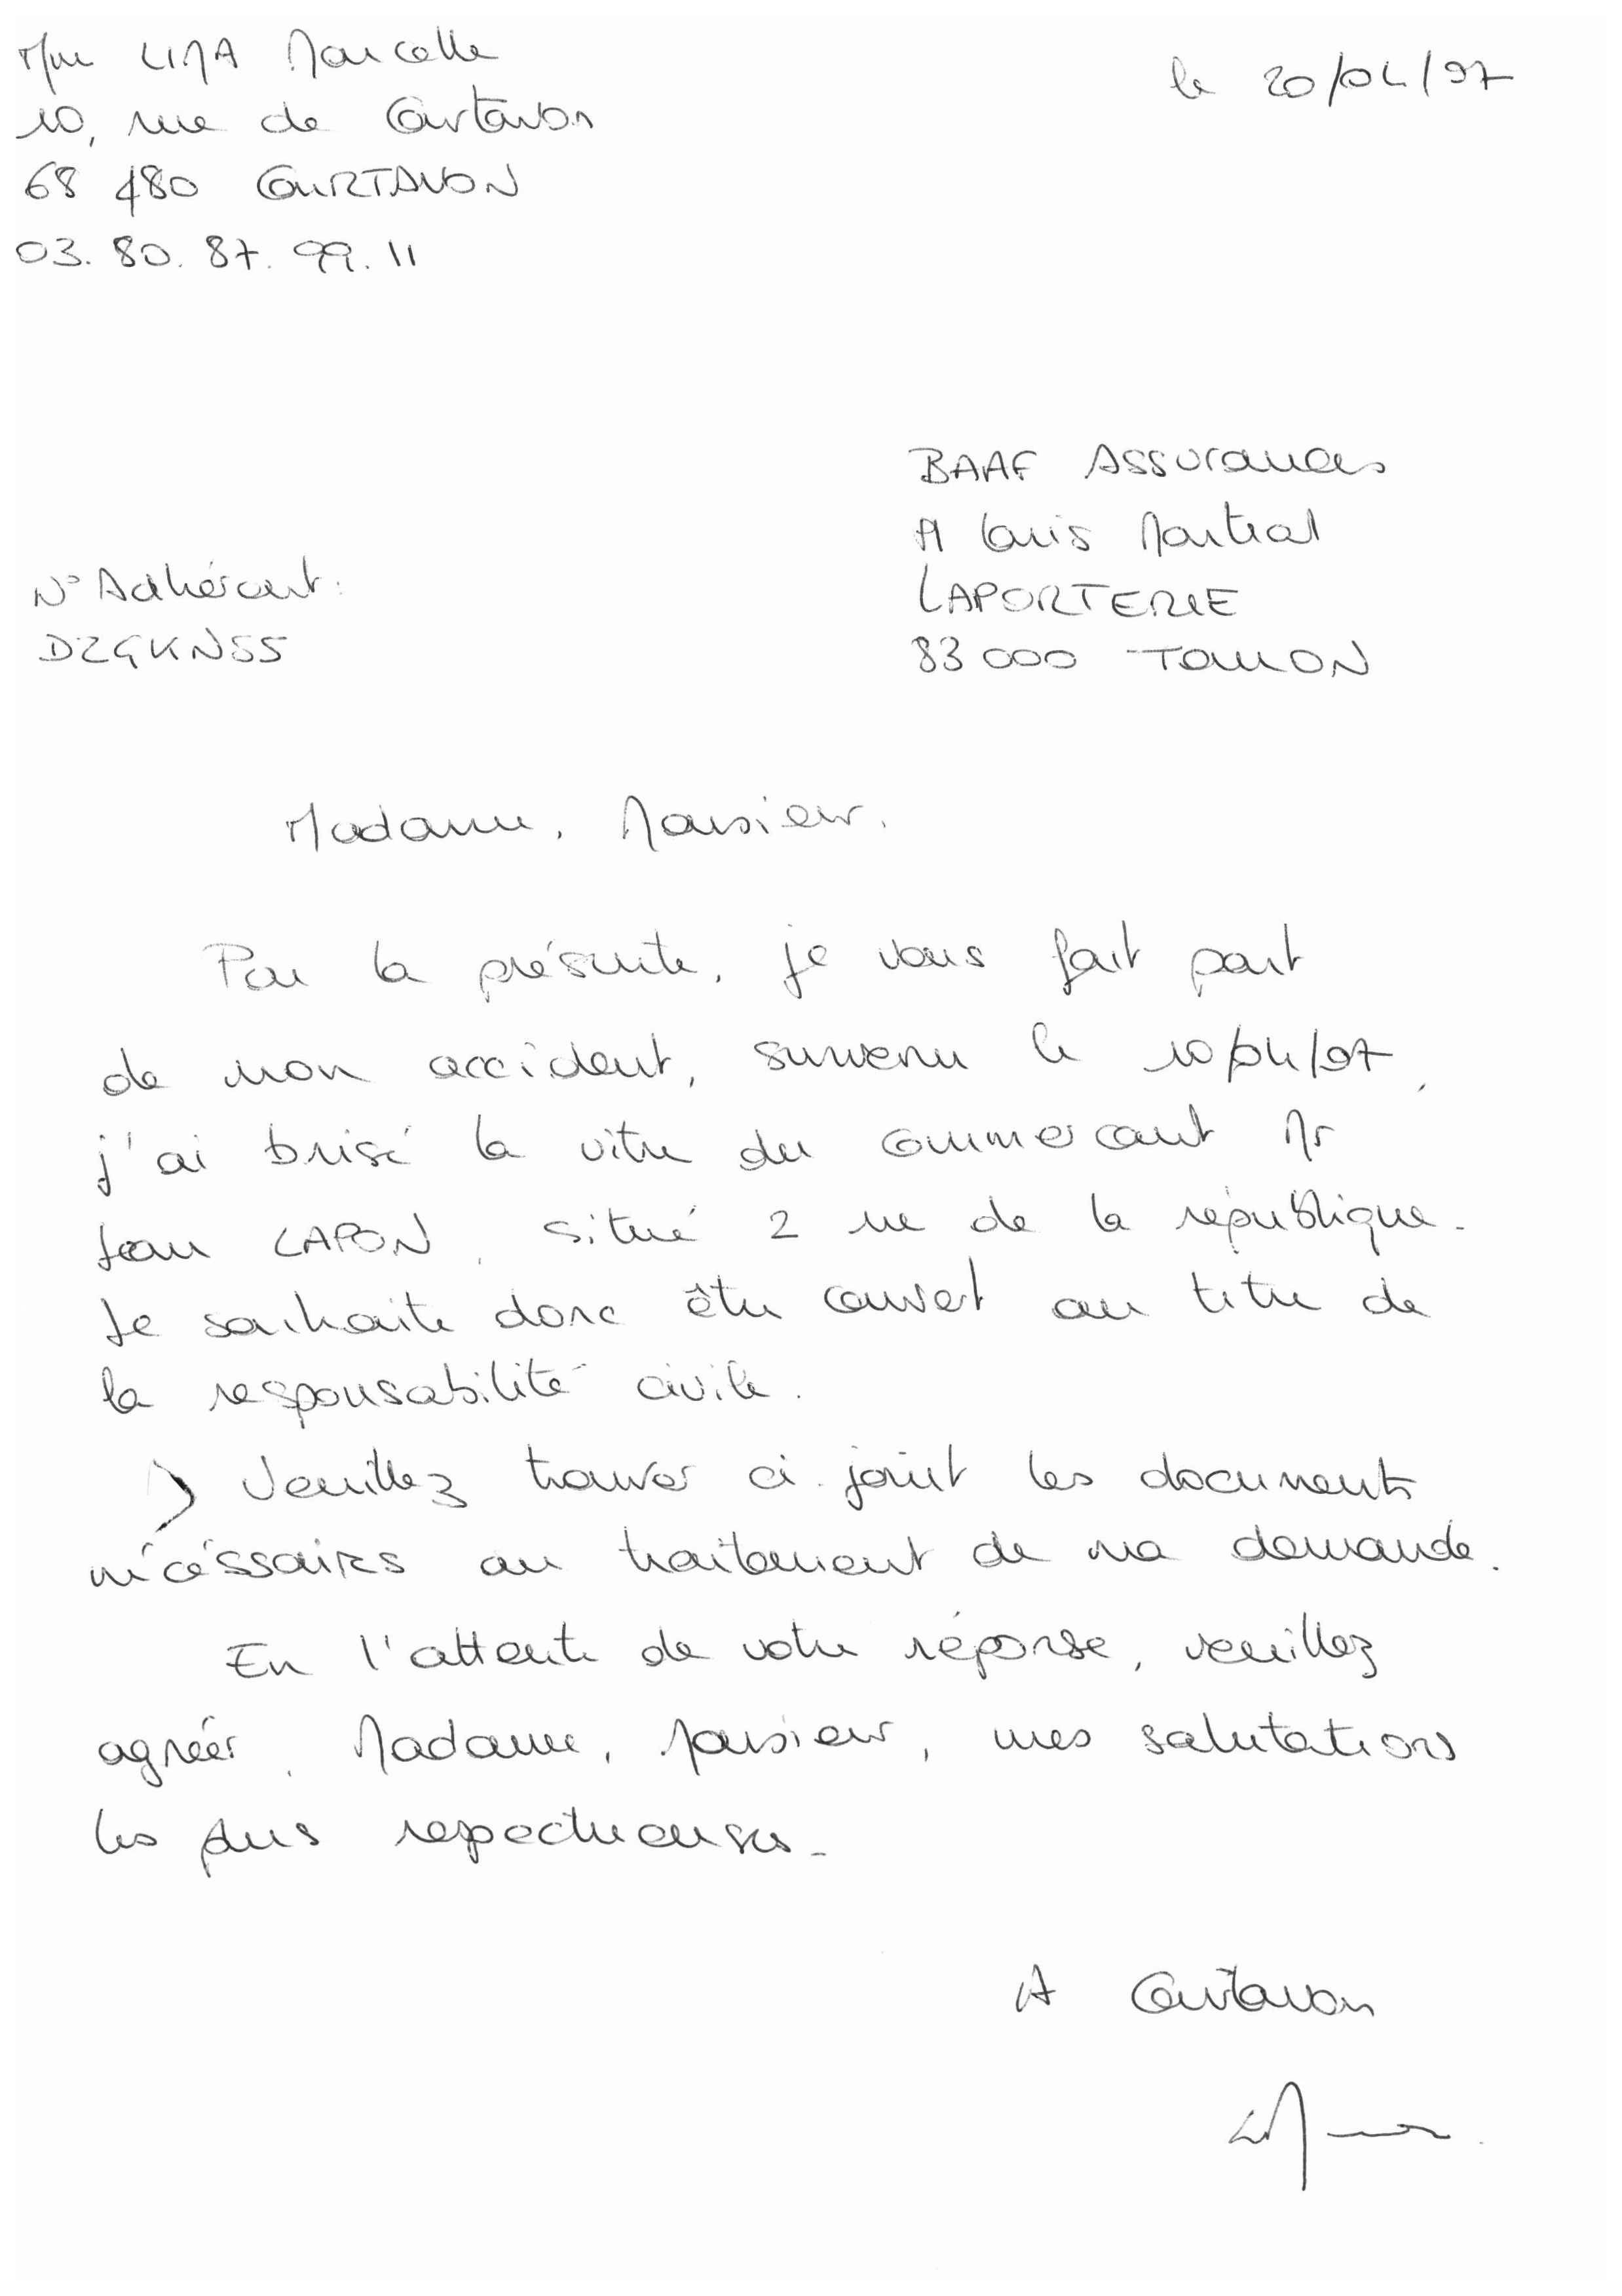 Mme LIMA Marcelle
le 20/04/97
10, rue de Courtavon
68 480 COURTAVON
03. 80. 87. 99. 11
BAAF Assurances
A Louis Martial
LAPORTERIE
83 000 TOULON
N° Adhérent:
DZGKN55
Madame, Monsieur,
Par la présente, je vous fait part
de mon accident, survenu le 10/04/97,
j'ai brisé la vitre du commercant Mr
Jean LAPON, situé 2 rue de la république.
Je souhaite donc être couvert au titre de
la responsabilité civile.
Veuillez trouver ci-joint les documents
nécéssaires au traitement de ma demande.
En l'attente de votre réponse, veuillez
agréer, Madame, Monsieur, mes salutations
les plus respectueuses.
A Courtavon